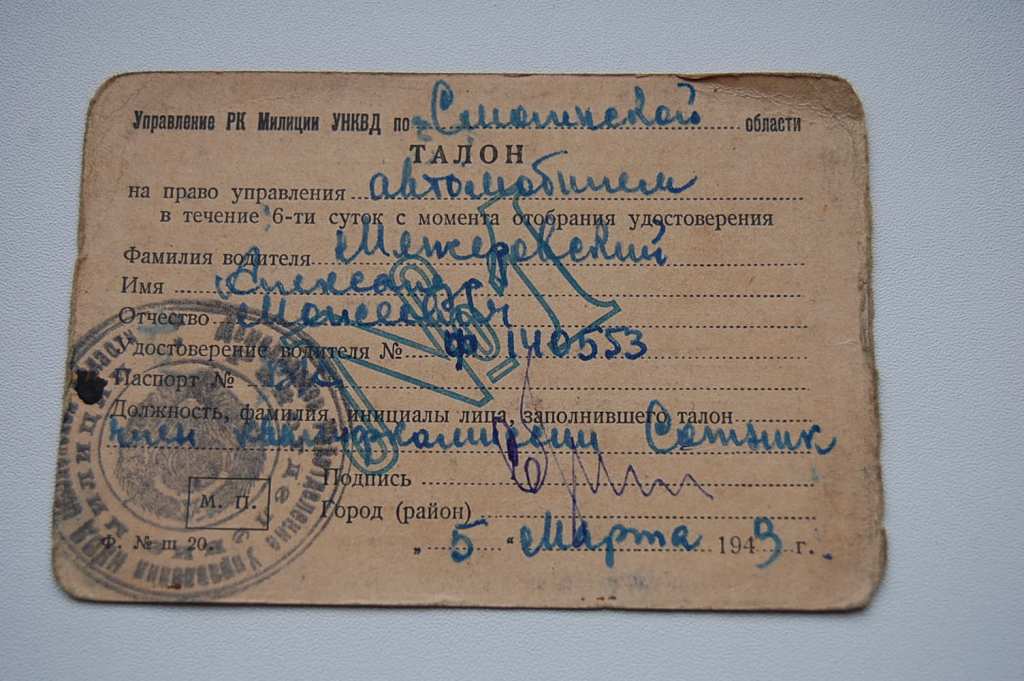 Управление РК Милиции УНКВД по области
ТАЛОН
на право управления автомобилем
в течение 6-ти суток с момента отобрания удостоверения
Фамилия водителя Межеровский
Имя Александр
Отчество Моисеевич
Удостоверение водителя № Ф 140553
Паспорт №
Должность, фамилия, инициалы лица, заполнившего талон
член Сотник
Подпись
Город (район)
М. П.
Ф. № ш 20.
„ 5 “ Марта 1943 г.
№1